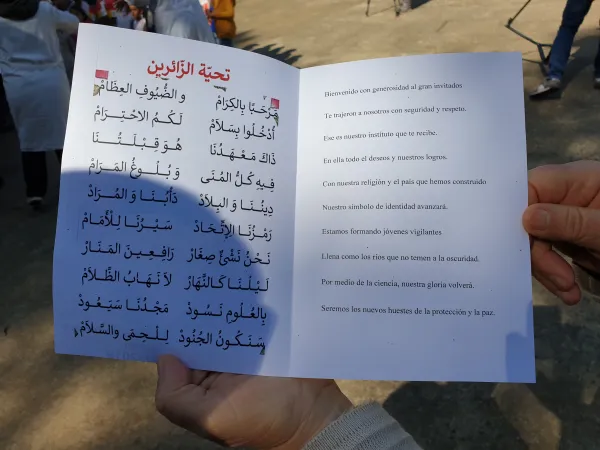 تحيّة الزّائرين
مَرْحَبًا بِالكِرَامْ و الضُّيُوفِ العِظَامْ
أُدْخُلُوا بِسَلاَمْ لَكُمُ الاحْتِرَامْ
ذَاكَ مَعْهَدُنَا هُوَ قِبْلَتُنَا
فِيهِ كُلُّ المُنَى وَ بُلُوغُ المَرَامْ
دِينُنَا وَ البِلاَدْ دَأْبُنَا وَ المُرَادْ
رَمْزُنَا الإتِّحَادْ سَيْرُنَا لِلأَمَامْ
نَحْنُ نَشْئٌ صِغَارْ رَافِعِينَ المَنَارْ
لَيْلُنَا كَالنَّهَارْ لاَ نَهَابُ الظَّلاَمْ
بِالعُلُومِ نَسُودْ مَجْدُنَا سَيَعُودْ
سَنَكُونُ الجُنُودْ لِلْحِمَى والسَّلاَمْ
Bienvenido con generosidad al gran invitados
Te trajeron a nosotros con seguridad y respeto.
Ese es nuestro instituto que te recibe.
En ella todo el deseos y nuestros logros.
Con nuestra religión y el país que hemos construido
Nuestro símbolo de identidad avanzará.
Estamos formando jóvenes vigilantes
Llena como los ríos que no temen a la oscuridad.
Por medio de la ciencia, nuestra gloria volverá.
Seremos los nuevos huestes de la protección y la paz.